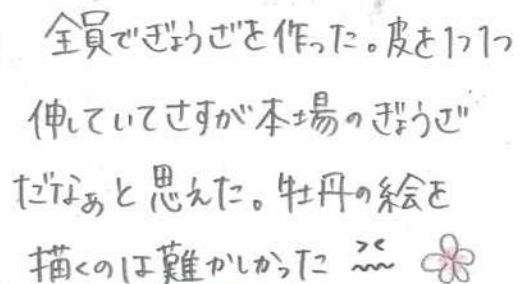 全員でぎょうざを作った。皮を1つ1つ
伸していてさすが本場のぎょうざ
だなぁと思えた。牡丹の絵を
描くのは難かしかった